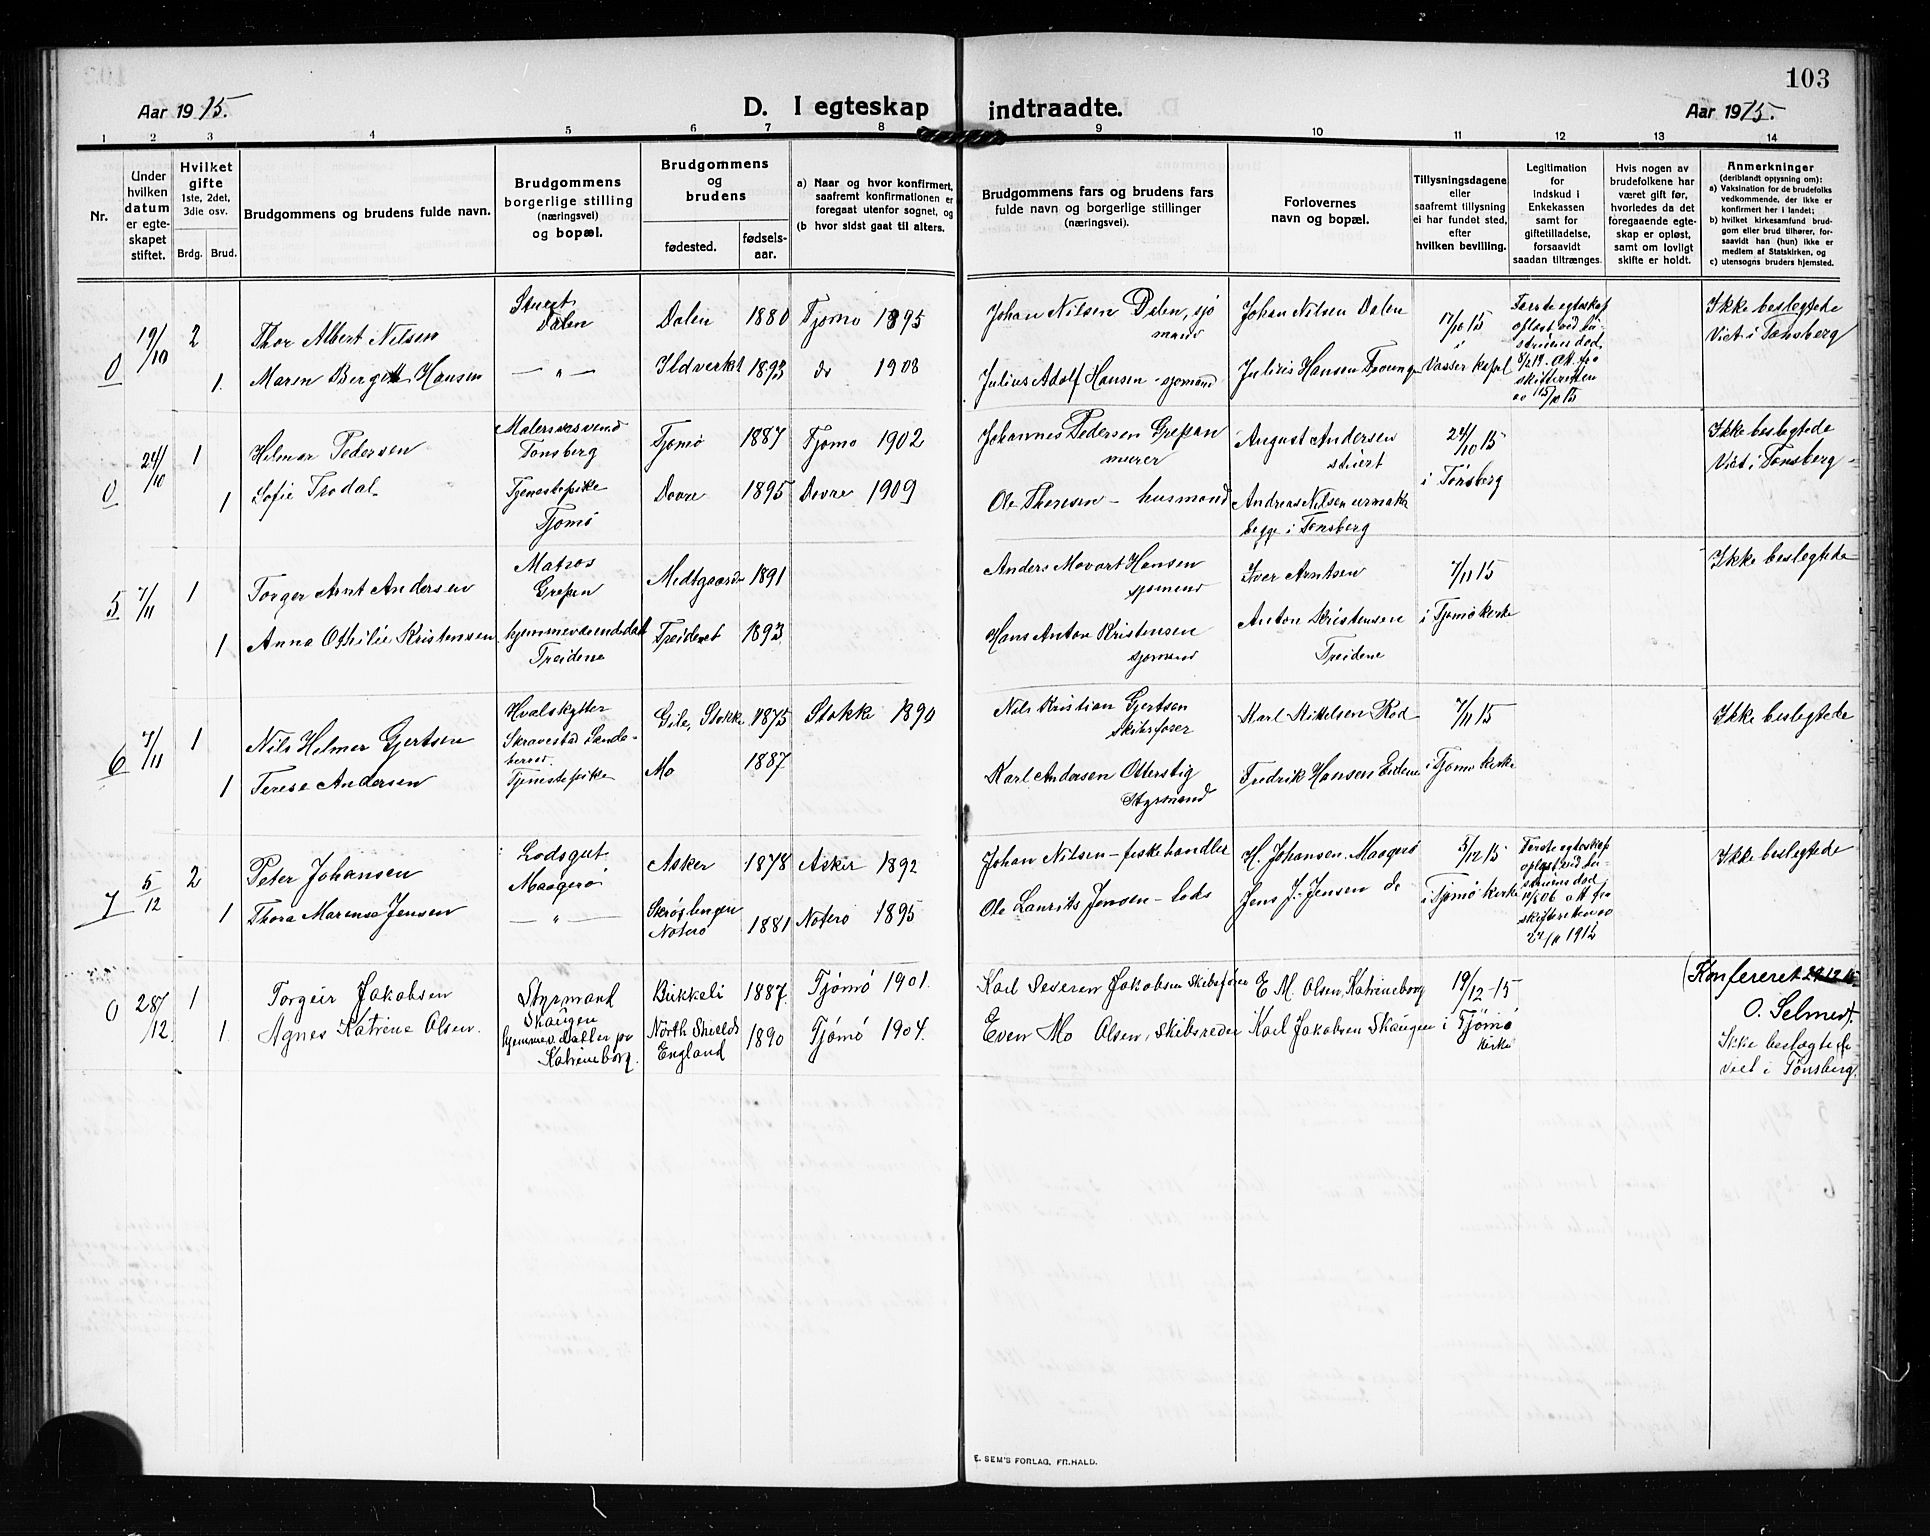 103
Aar 1915.
D. I egteskap indtraadte.
Aar 1915.
1 2 3 4 5 6 7 8 9 10 11 12 13 14
Nr.
Under
hvilken
datum
er egte-
skapet
stiftet.
Hvilket
gifte
1ste, 2det,
3die osv.
Brdg. Brud.
Brudgommens og brudens fulde navn.
Brudgommens
borgerlige stilling
(næringsvei)
og bopæl.
Brudgommens
og
brudens
fødested.
fødsels-
aar.
a) Naar og hvor konfirmert,
saafremt konfirmationen er
foregaat utenfor sognet, og
(b hvor sidst gaat til alters.
Brudgommens fars og brudens fars
fulde navn og borgerlige stillinger
(næringsvei).
Forlovernes
navn og bopæl.
Tillysningsdagene
eller
saafremt tillysning
ei har fundet sted,
efter
hvilken bevilling.
Legitimation
for
indskud i
Enkekassen
samt for
giftetilladelse,
forsaavidt
saadan tiltrænges.
Hvis nogen av
brudefolkene har
været gift før,
hvorledes da det
foregaaende egte-
skap er opløst,
samt om lovligt
skifte er holdt.
Anmerkninger
(deriblandt opjysning om):
a) Vaksination for de brudefolks
vedkommende, der ikke er
konfirmert her i landet;
b) hvilket kirkesamfund brud-
gom eller brud tilhører, for-
saavidt han (hun) ikke er
medlem af Statskirken, og
c) utensogns bruders hjemsted.
0
19/10
2
Thor Albert Nilsen
Stuert
Dalen
Dalen
1880
Tjømø 1895
Johan Nilsen Dalen, sjø
mand
Johan Nilsen Dalen
17/10 15
i
Vasser kapel
Første egteskap
opløst ved hu-
struens død
8/2 14. Att. fra
skifteretten
av 15/10 15
Ikke beslegtede
Viet i Tønsberg
1.
Maren Bergitte Hansen
— „ —
Ildverket
1893
do 1908
Julius Adolf Hansen - sjømand
Julius Hansen
0
24/10
1
Hilmar Pedersen
Malersvend
Tønsberg
Tjømø
1887
Tjømø 1902
Johannes Pedersen Grepan
murer
August Andersen
stuert
24/10 15
i Tønsberg
Ikke beslegtede
Viet i Tønsberg -
1
Sofie Trodal
Tjenestepike
Tjømø
Dovre
1895
Dovre 1909
Ole Thoresen - husmand
Andreas Nilsen urmaker
begge i Tønsberg
5
7/11
1
Torger Arnt Andersen
Matros
Grepan
Medtgaarden
1891
Anders Movart Hansen
sjømand
Iver Arntsen
7/11 15
i Tjømø kirke
Ikke beslegtede
1
Anna Othilie Kristensen
hjemmeværende datt
Treidene
Treidene
1893
Hans Anton Kristensen
sjømand
Anton Kristensen
Treidene
6
7/11
1
Nils Hilmar Gjertsen
Hvalskytter
Skravestad Sande-
herred.
Gile, Stokke
1875
Stokke 1890
Nils Kristian Gjertsen
Skibsfører
Karl Kittelsen Rød
7/11 15
i Tjømø kirke
Ikke beslegtede
1
Terese Andersen
Tjenestepike
Mo
1887
Karl Andersen Otterstig
Styrmand
Fredrik Hansen Eidene
7
5/12
2
Peter Johansen
Lodsgut
Maagerø
Asker
1878
Asker 1892
Johan Nilsen - fiskehandler
H. Johansen, Maagerø
5/12 15
i Tjømø kirke
Første egteskap
opløst ved hu-
struens død
12/6 06 att fra
skifteretten av
22/11 1912
Ikke beslegtede
1
Thora Marense Jensen
— „ —
Nøterø
1881
Nøterø 1895
Ole Laurits Jensen - Lods
Jens J. Jensen do
0
28/12
1
Torgeir Jakobsen
Styrmand
Skaugen
Bukkeli
1887
Tjømø 1901.
Karl Severin Jakobsen Skibsfører
E. M. Olsen, Katrineborg
19/12 - 15
i Tjømø
kirke
(Konfereret 29.12.15
O. Selmer).
Ikke beslægtede
viet i Tønsberg.
1.
Agnes Katrine Olsen.
hjemmev. datter pr
Katrineborg.
North Shields
England
1890
Tjømø 1904.
Even Mo Olsen, Skibsreder
Karl Jakobsen Skaugen
E. SEM'S FORLAG, FR.HALD.